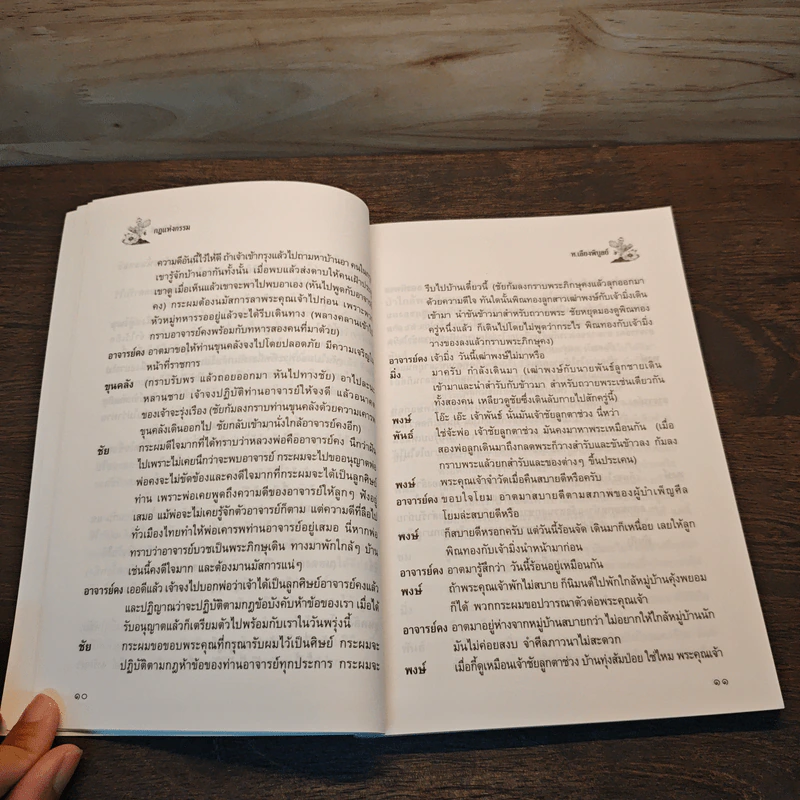 กฎแห่งกรรม
ความดีอันนี้ไว้ให้ดี ถ้าเจ้าเข้ากรุงแล้วไปถามหาบ้านอา คน
เขารู้จักบ้านอากันทั้งนั้น เมื่อพบแล้วส่งดาบให้คนเฝ้า
เขาดู เมื่อเห็นแล้วเขาจะพาไปพบอาเอง (หันไปพูดกับอาจารย์
คง) กระผมต้องนมัสการลาพระคุณเจ้าไปก่อน เพราะ
หัวหมู่ทหารรออยู่แล้วจะได้รีบเดินทาง (พลางคลานเข้า
กราบอาจารย์คงพร้อมกับทหารสองคนที่มาด้วย)
อาจารย์คง อาตมาขอให้ท่านขุนคลังจงไปโดยปลอดภัย มีความเจริญ
หน้าที่ราชการ
ขุนคลัง (กราบรับพร แล้วถอยออกมา หันไปทางชัย) อาไปละ
หลานชาย เจ้าจงปฏิบัติท่านอาจารย์ให้จงดี แล้วอนาคต
ของเจ้าจะรุ่งเรือง (ชัยก้มลงกราบท่านขุนคลังด้วยความเคารพ
ขุนคลังเดินออกไป ชัยกลับเข้ามานั่งใกล้อาจารย์คงอีก)
ชัย กระผมดีใจมากที่ได้ทราบว่าหลวงพ่อคืออาจารย์คง นึกว่า
ไปเพราะไม่เคยนึกว่าจะพบอาจารย์ กระผมจะไปขออนุญาตพ่อ
พ่อคงจะไม่ขัดข้องและคงดีใจมากที่กระผมจะได้เป็นลูกศิษย์
ท่าน เพราะพ่อเคยพูดถึงความดีของอาจารย์ให้ลูกๆ ฟังอยู่
เสมอ แม้พ่อจะไม่เคยรู้จักตัวอาจารย์ก็ตาม แต่ความดีที่ลือไป
ทั่วเมืองไทยทำให้พ่อเคารพท่านอาจารย์อยู่เสมอ นี่หากพ่อ
ทราบว่าอาจารย์บวชเป็นพระภิกษุเดิน ทางมาพักใกล้ๆ บ้าน
เช่นนี้คงดีใจมาก และต้องมานมัสการแน่ๆ
อาจารย์คง เออดีแล้ว เจ้าจงไปบอกพ่อว่าเจ้าได้เป็นลูกศิษย์อาจารย์คงแล้ว
และปฏิญาณว่าจะปฏิบัติตามกฎข้อบังคับห้าข้อของเรา เมื่อได้
รับอนุญาตแล้วก็เตรียมตัวไปพร้อมกับเราในวันพรุ่งนี้
ชัย กระผมขอขอบพระคุณที่กรุณารับผมไว้เป็นศิษย์ กระผมจะ
ปฏิบัติตามกฎห้าข้อของท่านอาจารย์ทุกประการ กระผมจะ
๑๐
ท.เลียงพิบูลย์
รีบไปบ้านเดี๋ยวนี้ (ชัยก้มลงกราบพระภิกษุคงแล้วลุกออกมา
ด้วยความดีใจ ทันใดนั้นพิณทองลูกสาวเฒ่าพงษ์กับเจ้ามิ่งเดิน
เข้ามา นำขันข้าวมาสำหรับถวายพระ ชัยหยุดมองดูพิณทอง
ครู่หนึ่งแล้ว ก็เดินไปโดยไม่พูดว่ากระไร พิณทองกับเจ้ามิ่ง
วางของลงแล้วกราบพระภิกษุคง)
อาจารย์คง เจ้ามิ่ง วันนี้เฒ่าพงษ์ไม่มาหรือ
มิ่ง มาครับ กำลังเดินมา (เฒ่าพงษ์กับนายพันธ์ลูกชายเดิน
เข้ามาและนำสำรับกับข้าวมา สำหรับถวายพระเช่นเดียวกัน
ทั้งสองคน เหลียวดูชัยซึ่งเดินลับกายไปสักครู่นี้)
พงษ์ โอ๊ะ เอ๊ะ เจ้าพันธ์ นั่นมันเจ้าชัยลูกตาช่วง นี่หว่า
พันธ์ ใช่จ้ะพ่อ เจ้าชัยลูกตาช่วง มันคงมาหาพระเหมือนกัน (เมื่อ
สองพ่อลูกเดินมาถึงกลดพระก็วางสำรับและขันข้าวลง ก้มลง
กราบพระแล้วยกสำรับและของต่างๆ ขึ้นประเคน)
พงษ์ พระคุณเจ้าจำวัดเมื่อคืนสบายดีหรือครับ
อาจารย์คง ขอบใจโยม อาตมาสบายดีตามสภาพของผู้บำเพ็ญศีล
โยมล่ะสบายดีหรือ
พงษ์ ก็สบายดีหรอกครับ แต่วันนี้ร้อนจัด เดินมาก็เหนื่อย เลยให้ลูก
พิณทองกับเจ้ามิ่งนำหน้ามาก่อน
อาจารย์คง อาตมารู้สึกว่า วันนี้ร้อนอยู่เหมือนกัน
พงษ์ ถ้าพระคุณเจ้าพักไม่สบาย ก็นิมนต์ไปพักใกล้หมู่บ้านคุ้งพยอม
ก็ได้ พวกกระผมขอปวารณาตัวต่อพระคุณเจ้า
อาจารย์คง อาตมาอยู่ห่างจากหมู่บ้านสบายกว่า ไม่อยากให้ใกล้หมู่บ้านนัก
มันไม่ค่อยสงบ จำศีลภาวนาไม่สะดวก
พงษ์ เมื่อกี้ดูเหมือนเจ้าชัยลูกตาช่วง บ้านทุ่งส้มป่อย ใช่ไหม พระคุณเจ้า
๑๑